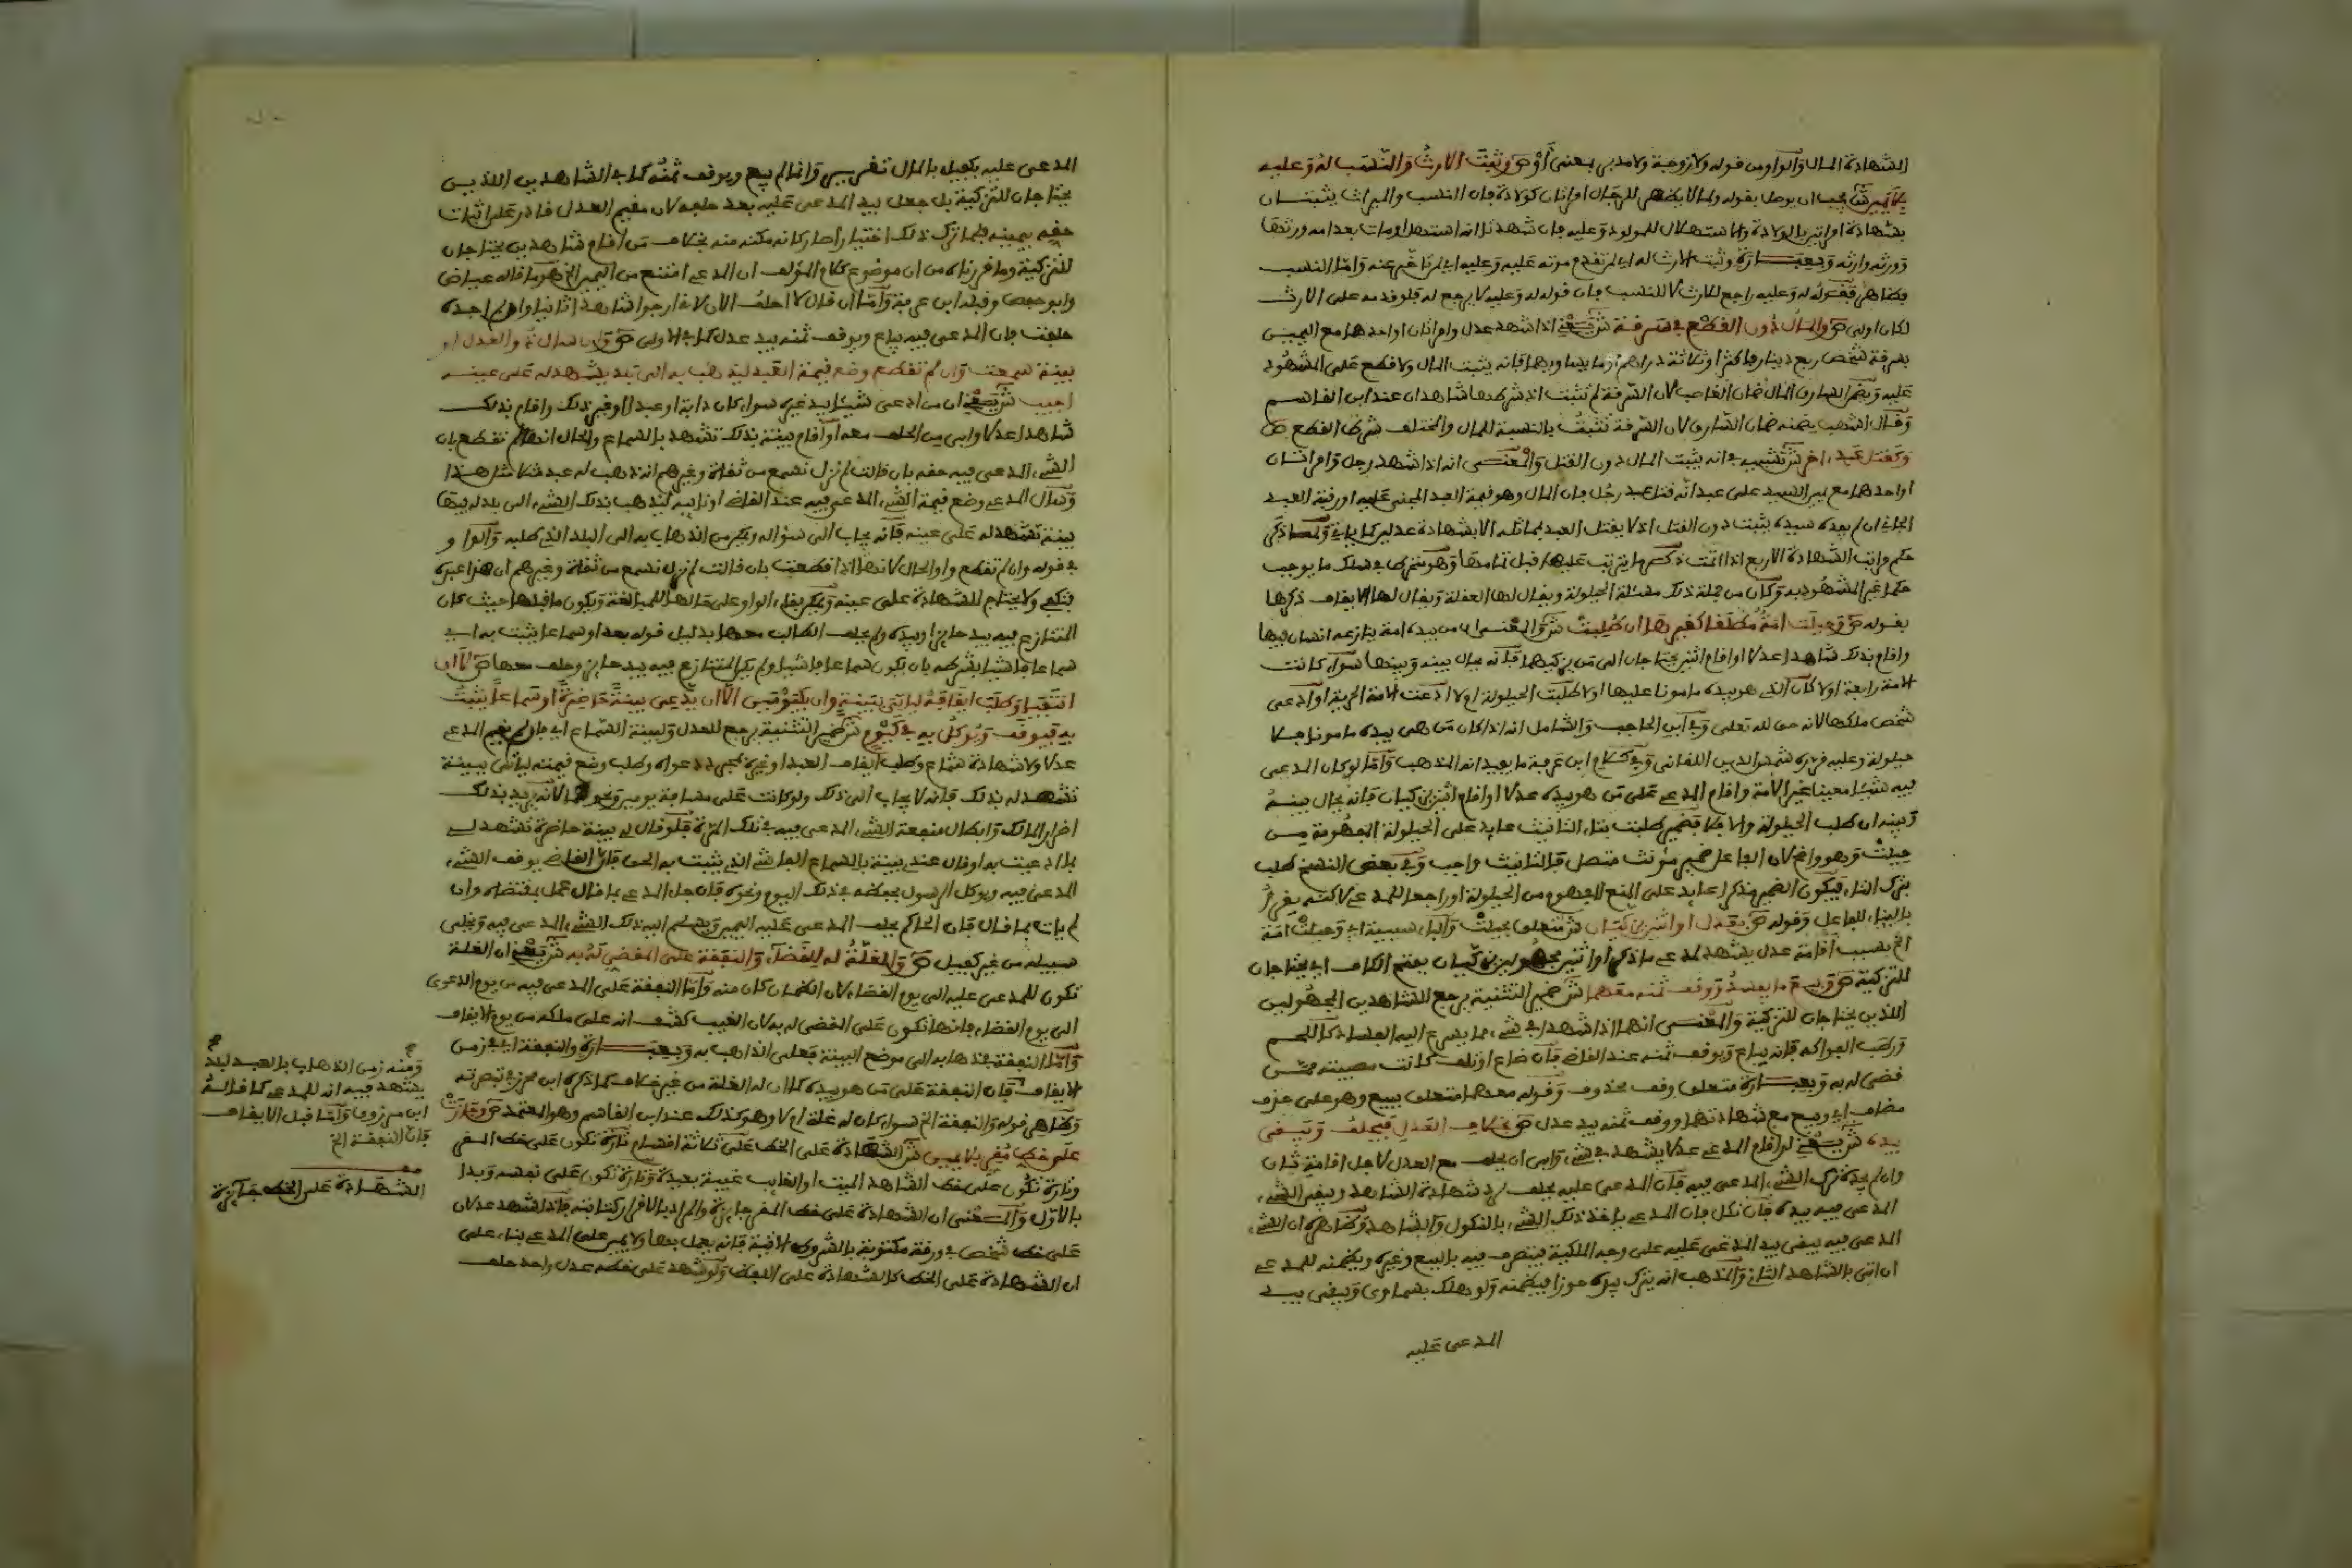 الشهادة المال والواو من قوله ولا زوجة ولا مدبى بمعنى أو ص وثبت الارث والنسب له وعليه
بلا يمين ش يجب ان يوصل بقوله ولما لا يظهر للرجال امراتان كولادة فان النسب والميراث يثبتان
بشهادة امراتين بالولادة والاستهلال للمولود وعليه فان شهدتا انه استهل ومات بعد امه ورثها
وورثه وارثه وبعبارة وثبت الارث له اي ان تقدم موته عليه وعليه اي ان تاخر عنه واما النسب
فظاهر فقوله له وعليه راجع للارث لا للنسب فان قوله له وعليه لا يرجع له فلو قدمه على الارث
لكان اولى ص والمال دون القطع في سرقة ش يعني اذا شهد عدل وامراتان او احدهما مع اليمين
بسرقة شخص ربع دينار فاكثر او ثلاثة دراهم او ما يساويهما فانه يثبت المال ولا قطع على المشهود
عليه ويضمن السارق المال ضمان الغاصب لان السرقة لم تثبت اذ شرطها شاهدان عند ابن القاسم
وقال اشهب يضمنه ضمان السارق لان السرقة تثبت بالنسبة للمال والمختلف شرط القطع ص
وكقتل عبد اخر ش تشبيه في انه يثبت المال دون القتل والمعنى انه اذا شهد رجل وامراتان
او احدهما مع يمين السيد على عبد انه قتل عبد رجل فان المال وهو قيمة العبد المجنى عليه او رقبة العبد
الجاني ان لم يفده سيده يثبت دون القتل اذ لا يقتل العبد بمماثله الا بشهادة عدلين كما ياتي ولما ذكر
حكم مراتب الشهادة الاربع اذا تمت ذكر ما يترتب عليها قبل تمامها
حكما غير المشهود به وكان من جملة ذلك مسئلة الحيلولة ويقال لها العقلة ويقال لها الايقاف ذكرها
بقوله ص وحيلت امة مطلقا كغيرها ان طلبت ش والمعنى ان من بيده امة ينازعه انسان فيها
واقام بذلك شاهدا عدلا او اقام اثنين يحتاجان الى من يزكيهما فانه يحال بينه وبينها سواء كانت
الامة رايعة او لا كان الذي هو بيده مامونا عليها او لا طلبت الحيلولة او لا ادعت الامة الحرية او ادعى
شخص ملكها لانه حق لله تعلى وفي ابن الحاجب والشامل انه اذا كان من هي بيده مامونا فلا
حيلولة وعليه قرره شمس الدين اللقاني وفي كلام ابن عرفة ما يفيد انه المذهب واما لو كان المدعى
فيه شيئا معينا غير الامة واقام المدعي على من هو بيده عدلا او اقام اثنين يزكيان فانه يحال بينه
وبينه ان طلب الحيلولة والا فلا فضمير طلبت بتاء التانيث عايد على الحيلولة المفهومة من
حيلت وهو واضح لان الفاعل ضمير مؤنث متصل فالتانيث واجب وفي بعض النسخ طلب
بترك التاء فيكون الضمير مذكرا عايد على المنع المفهوم من الحيلولة او راجعا للمدعي لاكنه يقرا
بالبناء للفاعل وقوله ص بعدل او اثنين يزكيان ش متعلق بحيلت والباء سببية اي وحيلت امة
الخ بسبب اقامة عدل يشهد للمدعي بما ذكر او اثنين مجهولين يزكيان بفتح الكاف اي يحتاجان
للتزكية ص وبيع ما يفسد ووقف ثمنه معهما ش ضمير التثنية يرجع للشاهدين المجهولين
اللذين يحتاجان للتزكية والمعنى انهما اذا شهدا في شيء مما يسرع اليه الفساد كاللحم
ورطب الفواكه فانه يباع ويوقف ثمنه عند القاضي فان ضاع او تلف كانت مصيبته ممن
قضي له به وبعبارة متعلق وقف محذوف وقوله معهما متعلق ببيع وهو على حذف
مضاف اي وبيع مع شهادتهما ووقف ثمنه بيد عدل ص بخلاف العدل فيحلف ويبقى
بيده ش يعني لو اقام المدعي عدلا يشهد في شيء وابى ان يحلف مع العدل لاجل اقامة ثان
وان لم يجده ترك الشيء المدعى فيه فان المدعى عليه يحلف لرد شهادة الشاهد ويبقى الشيء
المدعى فيه بيده فان نكل فان المدعي ياخذ ذلك الشيء بالنكول والشاهد وظاهره ان الشيء
المدعى فيه يبقى بيد المدعى عليه على وجه الملكية فيتصرف فيه بالبيع وغيره ويضمنه للمدعي
ان اتى بالشاهد الثاني والمذهب انه يترك بيده حوزا فيضمنه ولو هلك بسماوي ويبقى بيد
المدعى عليه
المدعى عليه بكفيل بالمال وانما لم يبع ويوقف ثمنه كما في الشاهدين اللذين
يحتاجان للتزكية بل جعل بيد المدعى عليه بعد حلفه لان مقيم العدل قادر على اثبات
حقه بيمينه فلما ترك ذلك اختيارا صار كانه مكنه منه بخلاف من اقام شاهدين يحتاجان
للتزكية وما قررناه من ان موضوع كلام المؤلف ان المدعي امتنع من اليمين الخ هو ما قاله عياض
وابو حفص وقبله ابن عرفة واما ان قال لا احلف الان لاني ارجوا شاهدا ثانيا وان لم اجده
حلفت فان المدعى فيه يباع ويوقف ثمنه بيد عدل كما في الاولى ص وان سال ذو العدل او
بينة سمعت وان لم تقطع وضع قيمة العبد ليذهب به الى بلد يشهد له على عينه
اجيب ش يعني ان من ادعى شيئا بيد غيره سواء كان دابة او عبدا او غير ذلك واقام بذلك
شاهدا عدلا وابى من الحلف معه او اقام بينة بذلك تشهد بالسماع والحال انها لم تقطع بان
الشيء المدعى فيه حقه بان قالت لم نزل نسمع من ثقات وغيرهم انه ذهب له عبد مثلا مثل هذا
وسال المدعي وضع قيمة الشيء المدعى فيه عند القاضي او نائبه ليذهب بذلك الشيء الى بلد له فيها
بينة تشهد له على عينه فانه يجاب الى سؤاله ويمكن من الذهاب به الى البلد الذي طلبه والواو
في قوله وان لم تقطع واو الحال لانها اذا قطعت بان قالت لم نزل نسمع من ثقات وغيرهم ان هذا عبده
يكفي ولا يحتاج للشهادة على عينه ويمكن بقاء الواو على حالها للمبالغة ويكون ما قبلها حيث كان
المتنازع فيه بيد حائز او بيده ولم يحلف الطالب معها بدليل قوله بعد او سماعا يثبت به اي
سماعا فاشيا بشرطه بان يكون سماعا فاشيا ولم يكن المتنازع فيه بيد حائز وحلف معها ص لا ان
انتفيا وطلب ايقافه لياتي ببينة وان بكيومين الا ان يدعي بينة حاضرة او سماعا يثبت
به فيوقف ويوكل به في كيوم ش ضمير التثنية يرجع للعدل ولبينة السماع اي فان لم يقم المدعي
عدلا ولا شهادة سماع وطلب ايقاف العبد او غيره بمجرد دعواه وطلب وضع قيمته لياتي ببينة
تشهد له بذلك فانه لا يجاب الى ذلك ولو كانت على مسافة يومين ونحوهما لانه يريد بذلك
اضرار المالك وابطال منفعة الشيء المدعى فيه في تلك المدة فلو قال لي بينة حاضرة تشهد لي
بما ادعيت به او قال عندي بينة بالسماع الفاشي الذي يثبت به الحق فان القاضي يوقف الشيء
المدعى فيه ويوكل الرسول بحفظه في ذلك اليوم ونحوه فان جاء المدعي بما قال عمل بمقتضاه وان
لم يات بما قال فان الحاكم يحلف المدعى عليه اليمين ويسلم اليه ذلك الشيء المدعى فيه ويخلي
سبيله من غير كفيل ص والغلة له للقضاء والنفقة على المقضي له به ش يعني ان الغلة
تكون للمدعى عليه الى يوم القضاء لان الضمان كان منه واما النفقة على المدعى فيه من يوم الدعوى
الى يوم القضاء فانها تكون على المقضي له به لان الغيب كشف انه على ملكه من يوم الايقاف
واما النفقة في ذهابه الى موضع البينة فعلى الذاهب به وبعبارة والنفقة اي في زمن
الايقاف فان النفقة على من هو بيده كما ان له الغلة من غير خلاف كما ذكره ابن محرز في تبصرته
وظاهر قوله والنفقة الخ سواء كان له غلة ام لا وهو كذلك عند ابن القاسم وهو المعتمد ص وجازت
على خط مقر بلا يمين ش الشهادة على الخط على ثلاثة اقسام تارة تكون على خط المقر
وتارة تكون على خط الشاهد الميت او الغايب غيبة بعيدة وتارة تكون على نفسه وبدا
بالاول والمعنى ان الشهادة على خط المقر جايزة والمراد بالاقرار كتابته فاذا شهد عدلان
على خط شخص في ورقة مكتوبة بالشروط الاتية فانه يعمل بها ولا يمين على المدعي بناء على
ان الشهادة على الخط كالشهادة على اللفظ ولو شهد على خطه عدل واحد حلف
ومنه زمن الذهاب بالعبد لبلد
يشهد فيه انه للمدعي كما قاله
ابن مرزوق واما قبل الايقاف
فان النفقة الخ
الشهادة على الخط جايزة